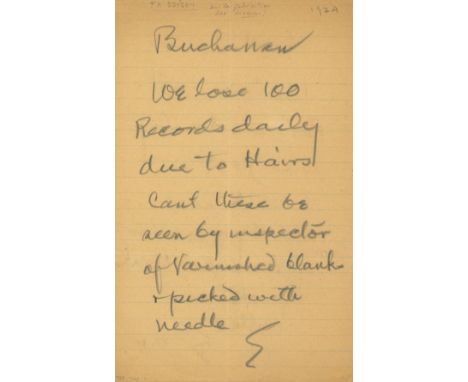 1924
Buchanan
We lose 100
Records daily
due to Hairs
Cant these be
seen by inspector
of Varnished blank
& picked with
needle
E